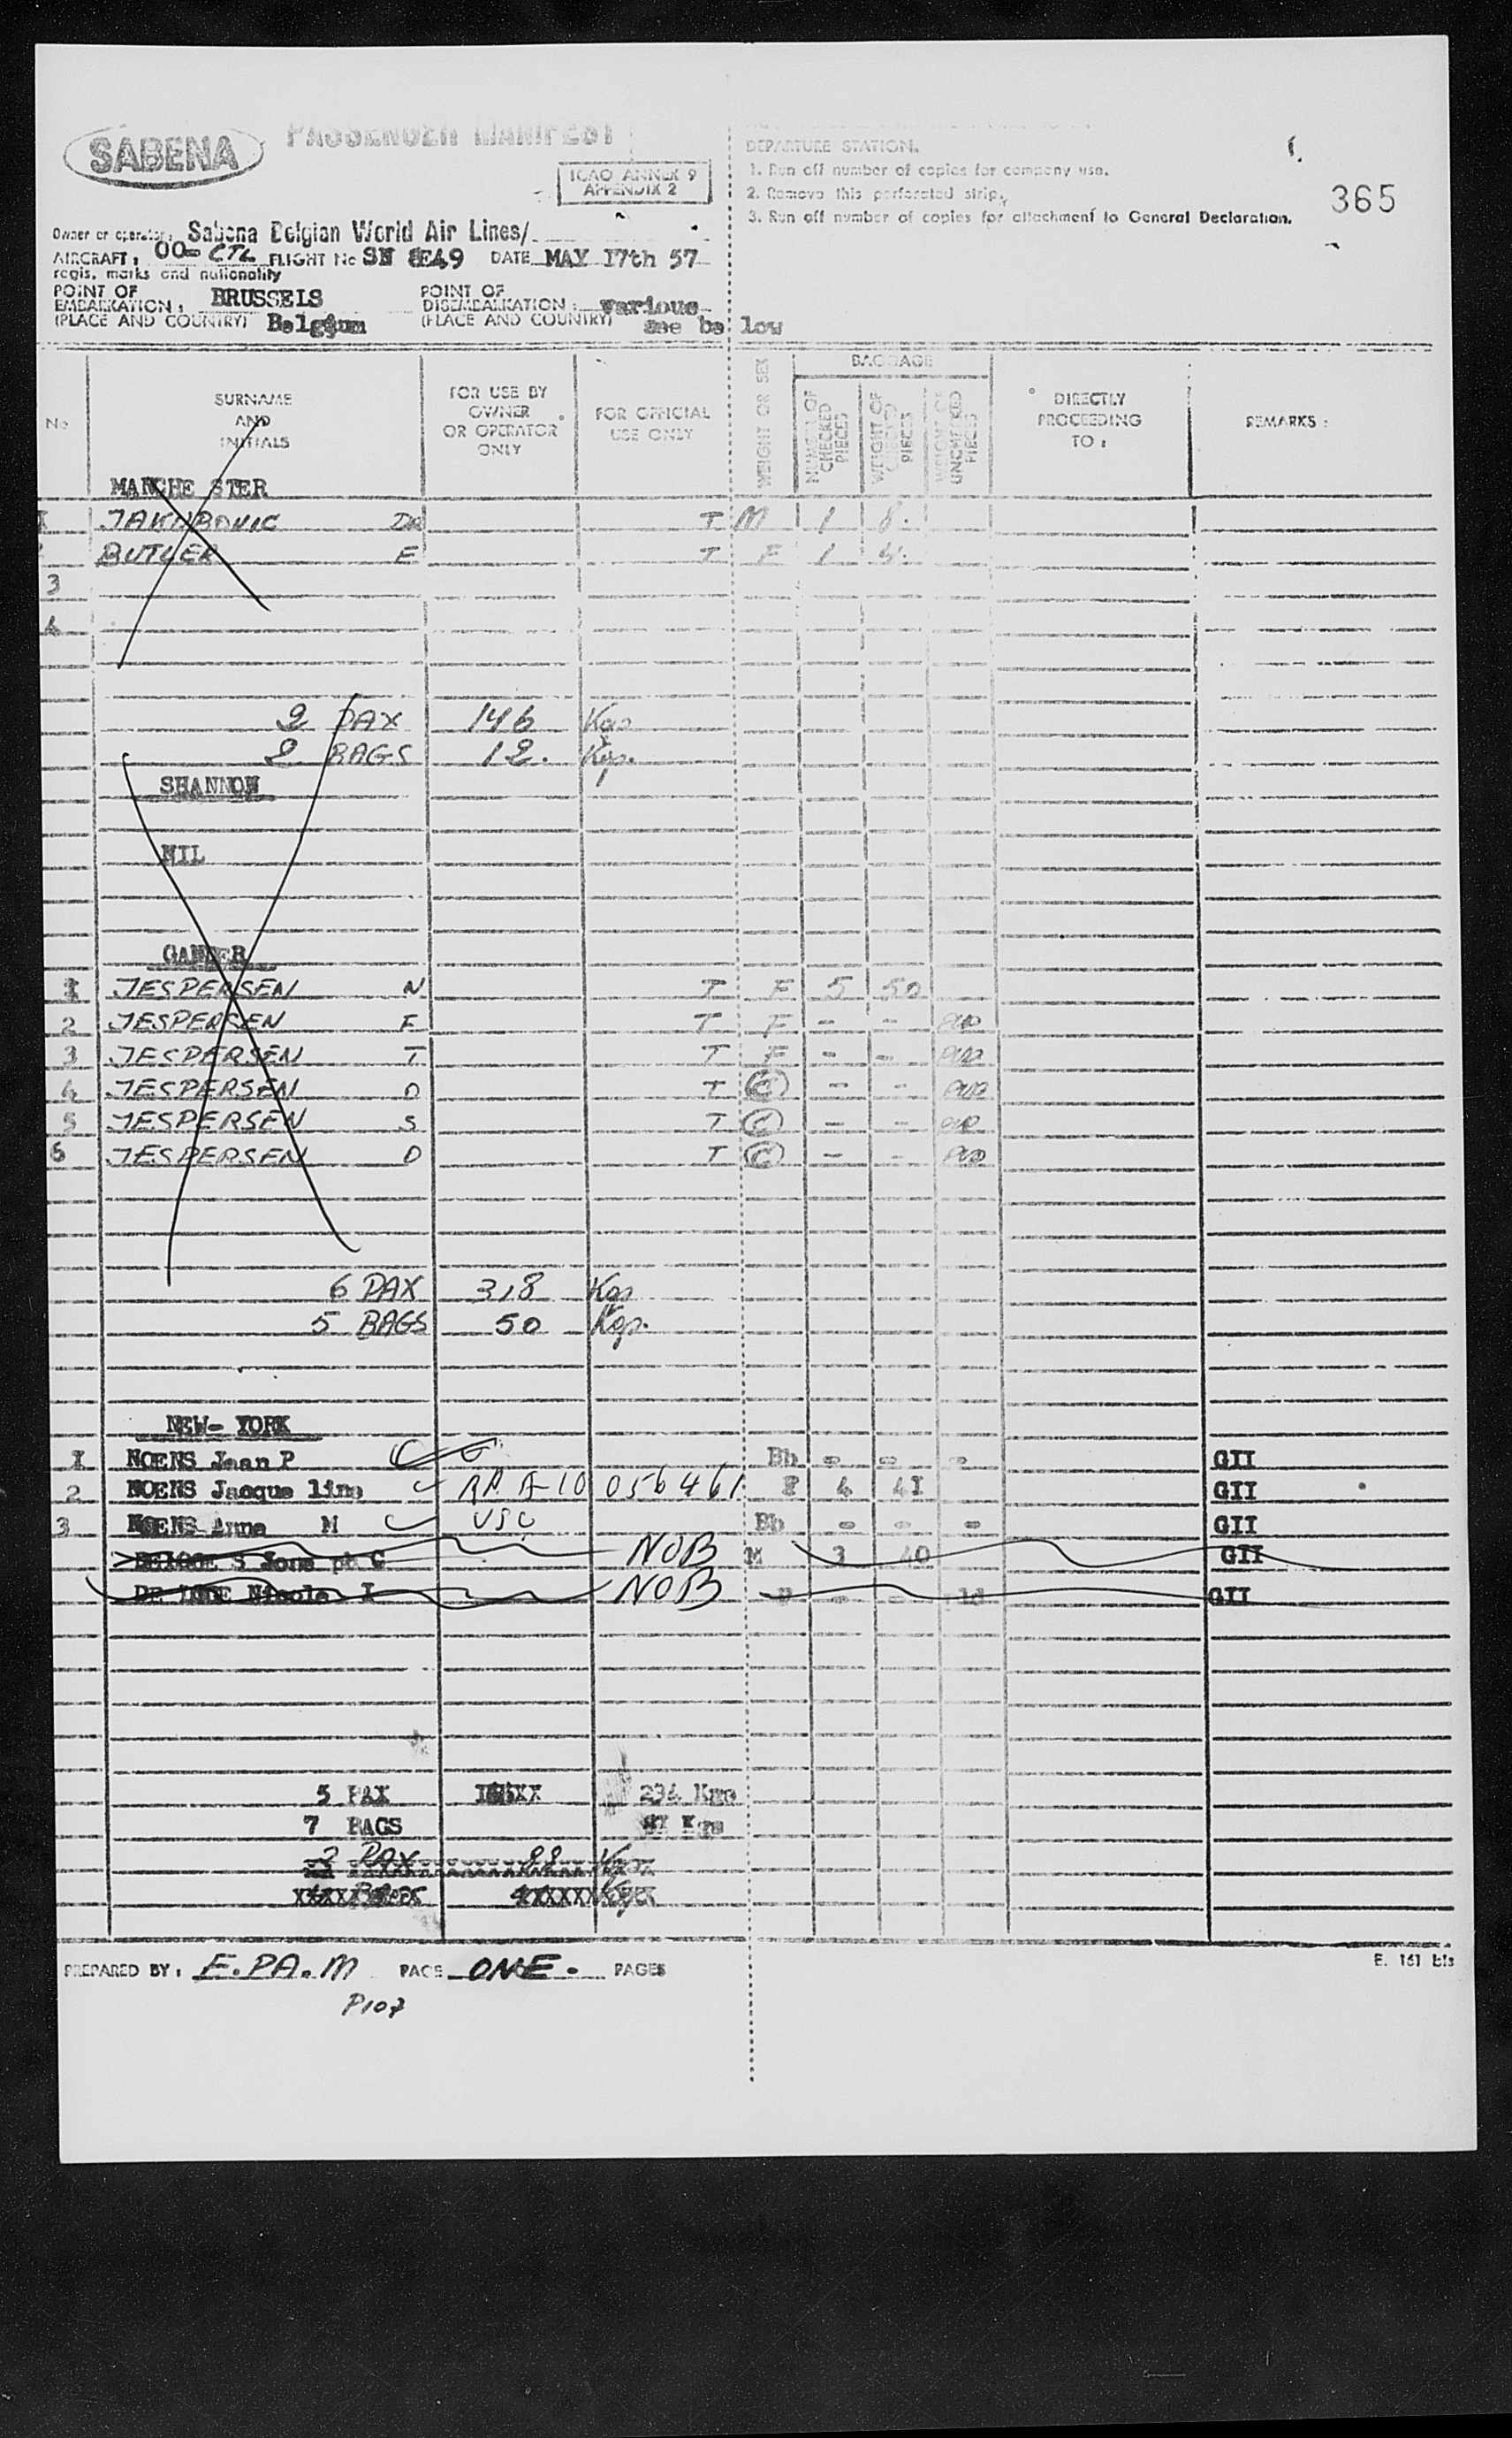 SABENA
PASSENGER MANIFEST
ICAO ANNEX 9
APPENDIX 2
DEPARTURE STATION.
1. Run off number of copies for company use.
2. Remove this perforated strip.
3. Run off number of copies for attachment to General Declaration.
365
Owner or operator: Sabena Belgian World Air Lines/
AIRCRAFT: OO-CTL FLIGHT No SN DATE MAY 17th 57
regis. marks and nationality
POINT OF EMBARKATION: BRUSSELS
(PLACE AND COUNTRY) Belgium
POINT OF DISEMBARKATION: various
(PLACE AND COUNTRY) see be low
No
SURNAME AND INITIALS
FOR USE BY OWNER OR OPERATOR ONLY
FOR OFFICIAL USE ONLY
WEIGHT OR SEX
BAGGAGE
NUMBER OF CHECKED PIECES
WEIGHT OF CHECKED PIECES
WEIGHT OF UNCHECKED PIECES
DIRECTLY PROCEEDING TO:
REMARKS:
MANCHE STER
DR T M 1 8.
BUTLER E T F 1
3
4
2 PAX 146 Kgs
2 BAGS 12. Kgs.
SHANNON
NIL
GANDER
1 JESPERSEN N T F 5 50
2 JESPERSEN F T F - -
3 JESPERSEN T T F - -
4 JESPERSEN O T C - -
5 JESPERSEN S T C - -
6 JESPERSEN O T C - -
6 PAX 318 Kgs
5 BAGS 50 Kgs.
NEW- YORK
1 NOENS Jean P Bb - - - GII
2 NOENS Jacque line A-10 056461 F 4 41 GII
3 NOENS Anna M USC Bb - - - GII
S Jose ph C NOB M 3 40 GII
Nicole I NOB - - GII
5 PAX 234 Kgs
7 BAGS 81 Kgs
2 PAX 88 Kgs
PREPARED BY: E.PA.M PAGE ONE. PAGES
E. 161 bis
P107